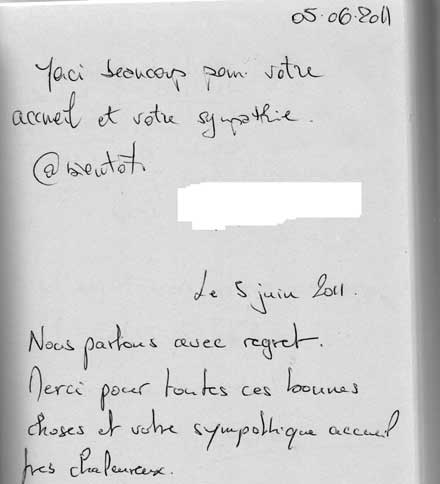 05.06.2011
Merci beaucoup pour votre
accueil et votre sympathie.
@bientôt.
Le 5 juin 2011.
Nous partons avec regret.
Merci pour toutes ces bonnes
choses et votre sympathique accueil
très chaleureux.